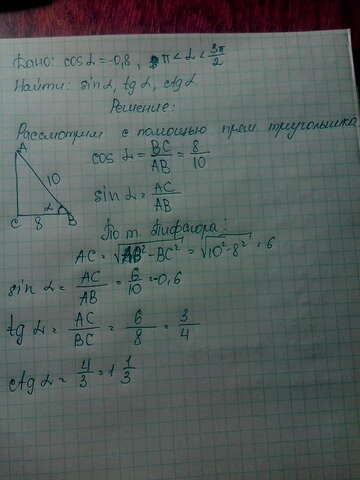 Дано: cos α = -0,8, π < α < 3π/2
Найти: sin α, tg α, ctg α
Решение:
Рассмотрим с помощью прям триугольника
A
10
α
C 8 B
cos α = BC/AB = 8/10
sin α = AC/AB
По т. Пифагора:
AC = √AB² - BC² = √10² - 8² = 6
sin α = AC/AB = 6/10 = -0,6
tg α = AC/BC = 6/8 = 3/4
ctg α = 4/3 = 1 1/3